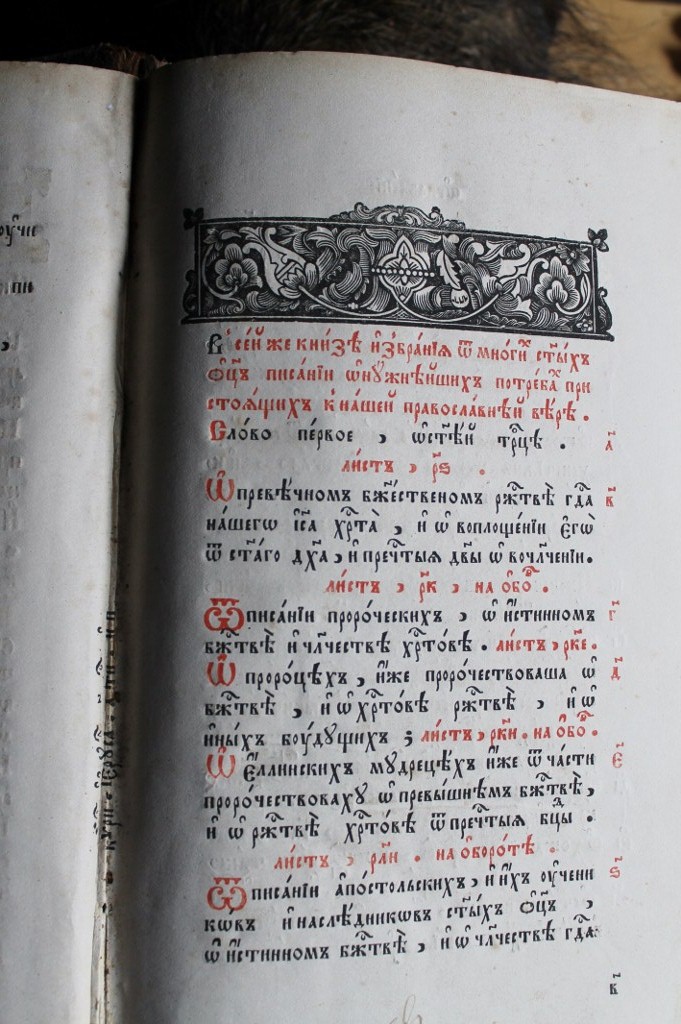 В сей же книзѣ и҆збра́нїѧ ѿ мно́гиⷯ ст҃ы́хъ
ѻ҆ц҃ъ писа́нїи ѡ҆ нꙋжнѣ́йшихъ потре́баⷯ при
стоѧ́щихъ к на́шей правосла́внѣй вѣ́рѣ .
Сло́во пе́рвое , ѡ҆ ст҃ѣ́й трⷪ҇цѣ . а҃
ли́стъ , р҃ѕ .
Ѡ҆ превѣ́чномъ бж҃е́ственомъ ржⷭ҇твѣ̀ гдⷭ҇а в҃
на́шегѡ і҆с҃а хрⷭ҇та̀ , и҆ ѡ҆ воплоще́нїи є҆гѡ̀
ѿ ст҃а́го дх҃а , и҆ преч҇тⷭ҇ыѧ дв҃ы ѡ҆ воч҃лче́нїи .
ли́стъ , р҃к , на ѻ҆бо́ⷬ .
Ѿ писа́нїи проро́ческихъ , ѡ҆ и҆́стинномъ г҃
бжⷭ҇твѣ̀ и҆ чл҃чествѣ хрⷭ҇то́вѣ . ли́стъ , рк҃є .
Ѡ҆ проро́цѣхъ , и҆̀же проро́чествоваша ѡ҆ д҃
бжⷭ҇твѣ̀ , и҆ ѡ҆ хрⷭ҇то́вѣ ржⷭ҇твѣ̀ , и҆ ѡ҆
и҆ны́хъ бꙋ́дущихъ ; ли́стъ , рк҃и . на ѻ҆бо́ⷬ .
Ѡ҆ є҆́ллинскихъ мꙋдрецѣ́хъ и҆̀же ѿ ча́сти є҃
проро́чествовахꙋ ѡ҆ превы́шнѣмъ бжⷭ҇твѣ̀ ,
и҆ ѡ҆ ржⷭ҇твѣ̀ хрⷭ҇то́вѣ ѿ преч҇тⷭ҇ыѧ бц҃ы .
ли́стъ , рл҃и . на ѻ҆боро́тѣ .
Ѿ писа́нїи а҆по́стольскихъ , и҆ и҆́хъ ᲂу҆чени ѕ҃
кѡ́въ и҆ наслѣ́дникѡвъ ст҃ы́хъ ѻ҆ц҃ъ ,
ѡ҆ и҆́стинномъ бжⷭ҇твѣ̀ , и҆ ѡ҆ чл҃чествѣ гдⷭ҇а
в҃